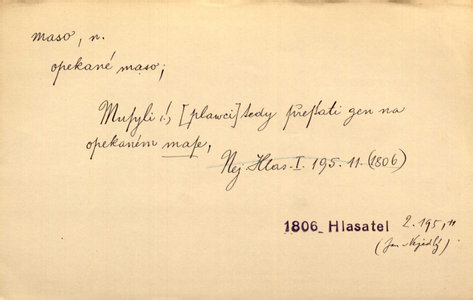 maso, n.
opekané maso;
Musyli (!) [plawci] tedy přestati gen na
opekaném mase,
Nej Hlas. I. 195. 11. (1806)
1806 Hlasatel 2. 195, 11
(Jan Nejedlý).